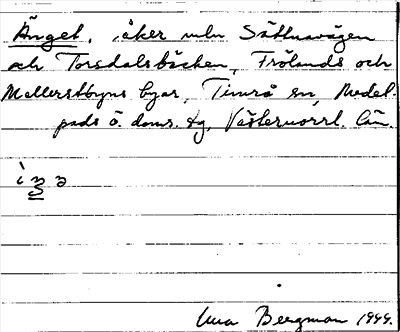 Änget, åker mln Sättnavägen
och Torsdalsbäcken, Frölands och
Mellerstbyns byar, Timrå sn, Medel-
pads ö. doms. tg, Västernorrl. län.
Una Bergman 1944.